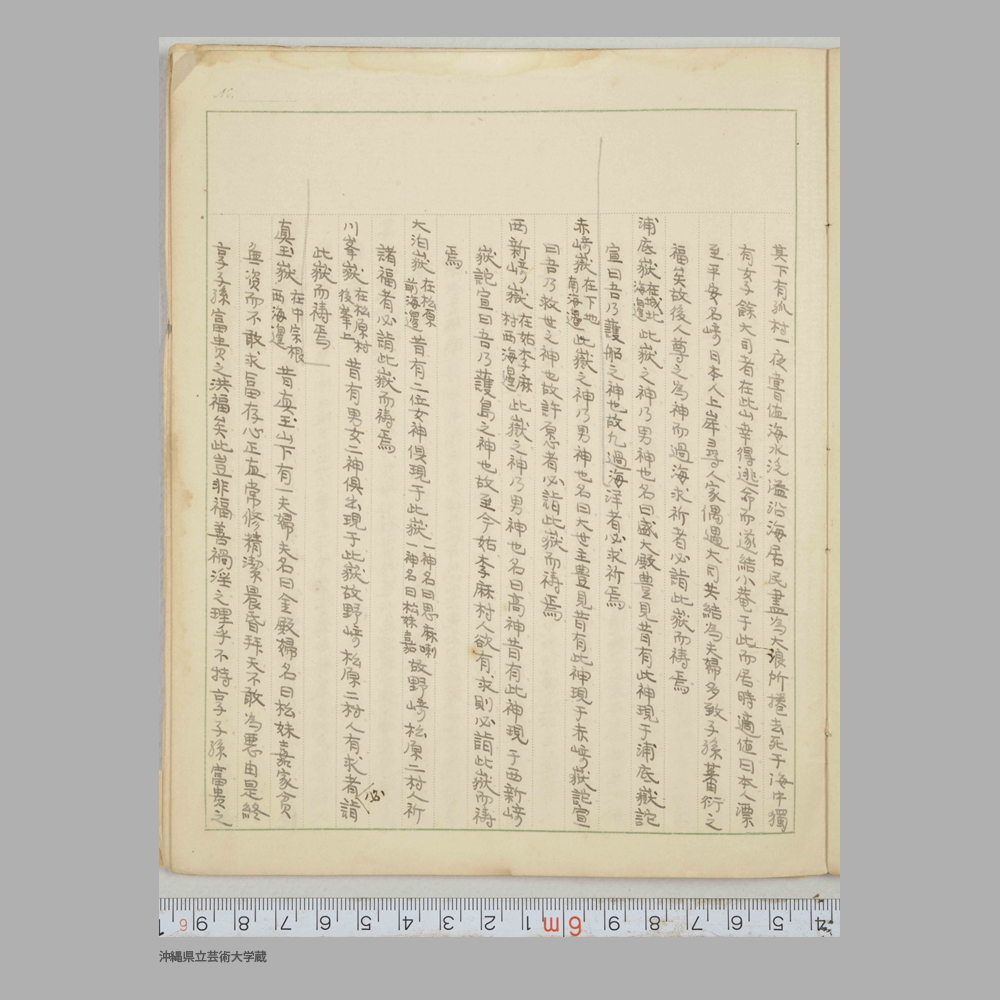 No.
其下有孤村一夜會値海水泛濫沿海居民盡為大浪所捲去死于海中獨
有女子餘大司者在此山幸得逃命而遂結小菴于此而居時適值日本人漂
至平安名崎日本人上岸尋人家偶遇大司共結為夫婦多致子孫蕃衍之
福矣故後人尊之為神而過海求祈者必詣此嶽而禱焉
浦底嶽在城北海邊此嶽之神乃男神也名曰盛大殿豊見昔有此神現于浦底嶽詑
宣曰吾乃護船之神也故凡過海洋者必求祈焉
赤崎嶽在下地南海邊此嶽之神乃男神也名曰大世主豊見昔有此神現于赤崎嶽詑宣
曰吾乃救世之神也故許愿者必詣此嶽而禱焉
西新崎嶽在姑李麻村西海邊此嶽之神乃男神也名曰高神昔有此神現于西新崎
嶽詑宣曰吾乃護島之神也故至今姑李麻村人欲有求則必詣此嶽而禱
焉
大泊嶽在松原前海邊昔有二位女神俱現于此嶽一神名曰思麻喇一神名曰松妹嘉故野崎松原二村人祈
諸福者必詣此嶽而禱焉
川峯嶽在松原村後峯上昔有男女二神俱出現于此嶽故野崎松原二村人有求者必詣
此嶽而禱焉
真玉嶽在中宗根西海邊昔真玉山下有一夫婦夫名曰金殿婦名曰松妹嘉家貧
無資而不敢求富存心正直常修精潔晨昏拜天不敢為悪由是終
享子孫富貴之洪福矣此豈非福善禍淫之理乎不特享子孫富貴之
沖縄県立芸術大学蔵